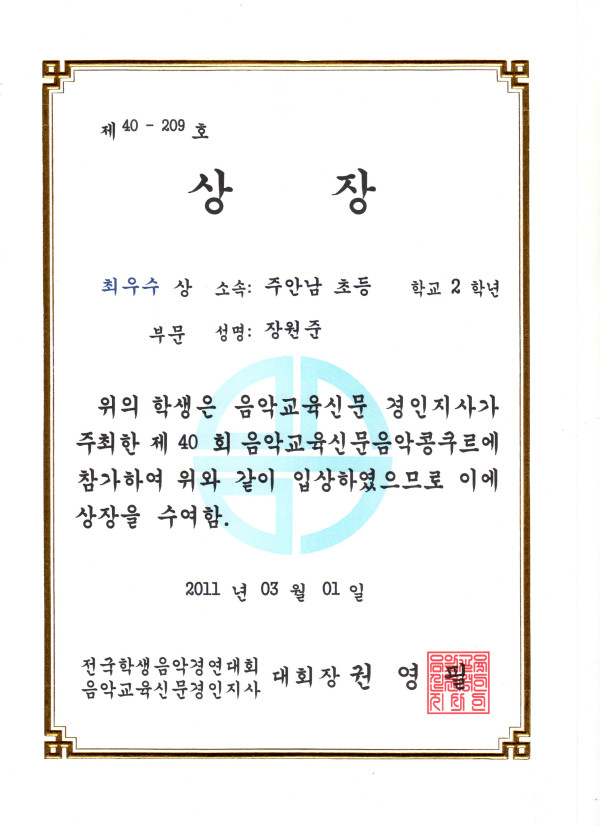 제 40 - 209 호
상 장
최우수 상 소속: 주안남 초등 학교 2 학년
부문 성명: 장원준
위의 학생은 음악교육신문 경인지사가
주최한 제 40 회 음악교육신문음악콩쿠르에
참가하여 위와 같이 입상하였으므로 이에
상장을 수여함.
2011 년 03 월 01 일
전국학생음악경연대회
음악교육신문경인지사
대회장 권 영 필